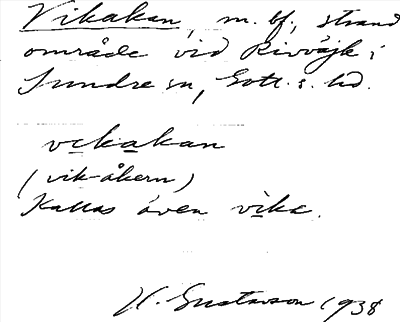 Vikakan, m. bf., strand
område vid Rivväjk i
Sundre sn, Gotl. s. hd.
vikakan
(vik-åkern)
Kallas även vika.
H. Gustavson 1938